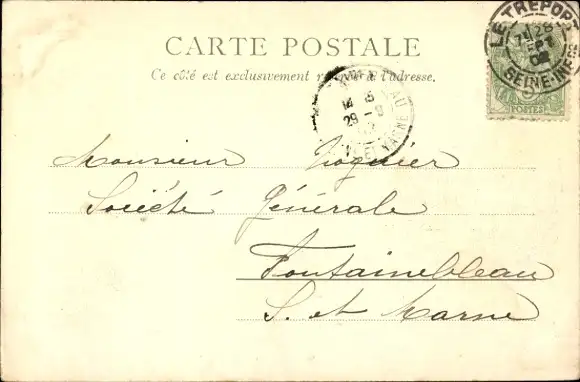 CARTE POSTALE
Ce côté est exclusivement réservé à l'adresse.
LE TREPORT
SEINE-INFRE
POSTES
Monsieur
Société Générale
Fontainebleau
S. et Marne